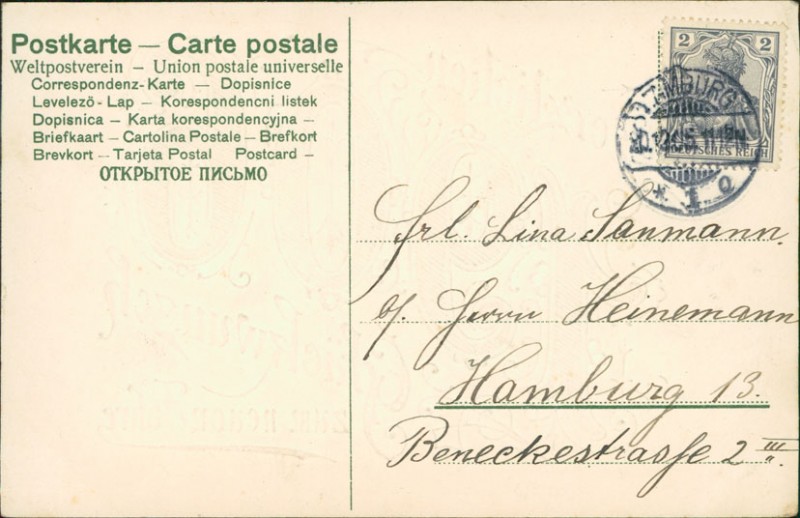 Postkarte — Carte postale
Weltpostverein — Union postale universelle
Correspondenz-Karte — Dopisnice
Levelező - Lap — Korespondencni listek
Dopisnica — Karta korespondencyjna —
Briefkaart — Cartolina Postale — Brefkort
Brevkort — Tarjeta Postal Postcard —
ОТКРЫТОЕ ПИСЬМО
2 2
DEUTSCHES REICH
HAMBURG
* 1 o
Frl. Lina Sanmann.
b/. Herrn Heinemann
Hamburg 13.
Beneckestrasse 2 III.